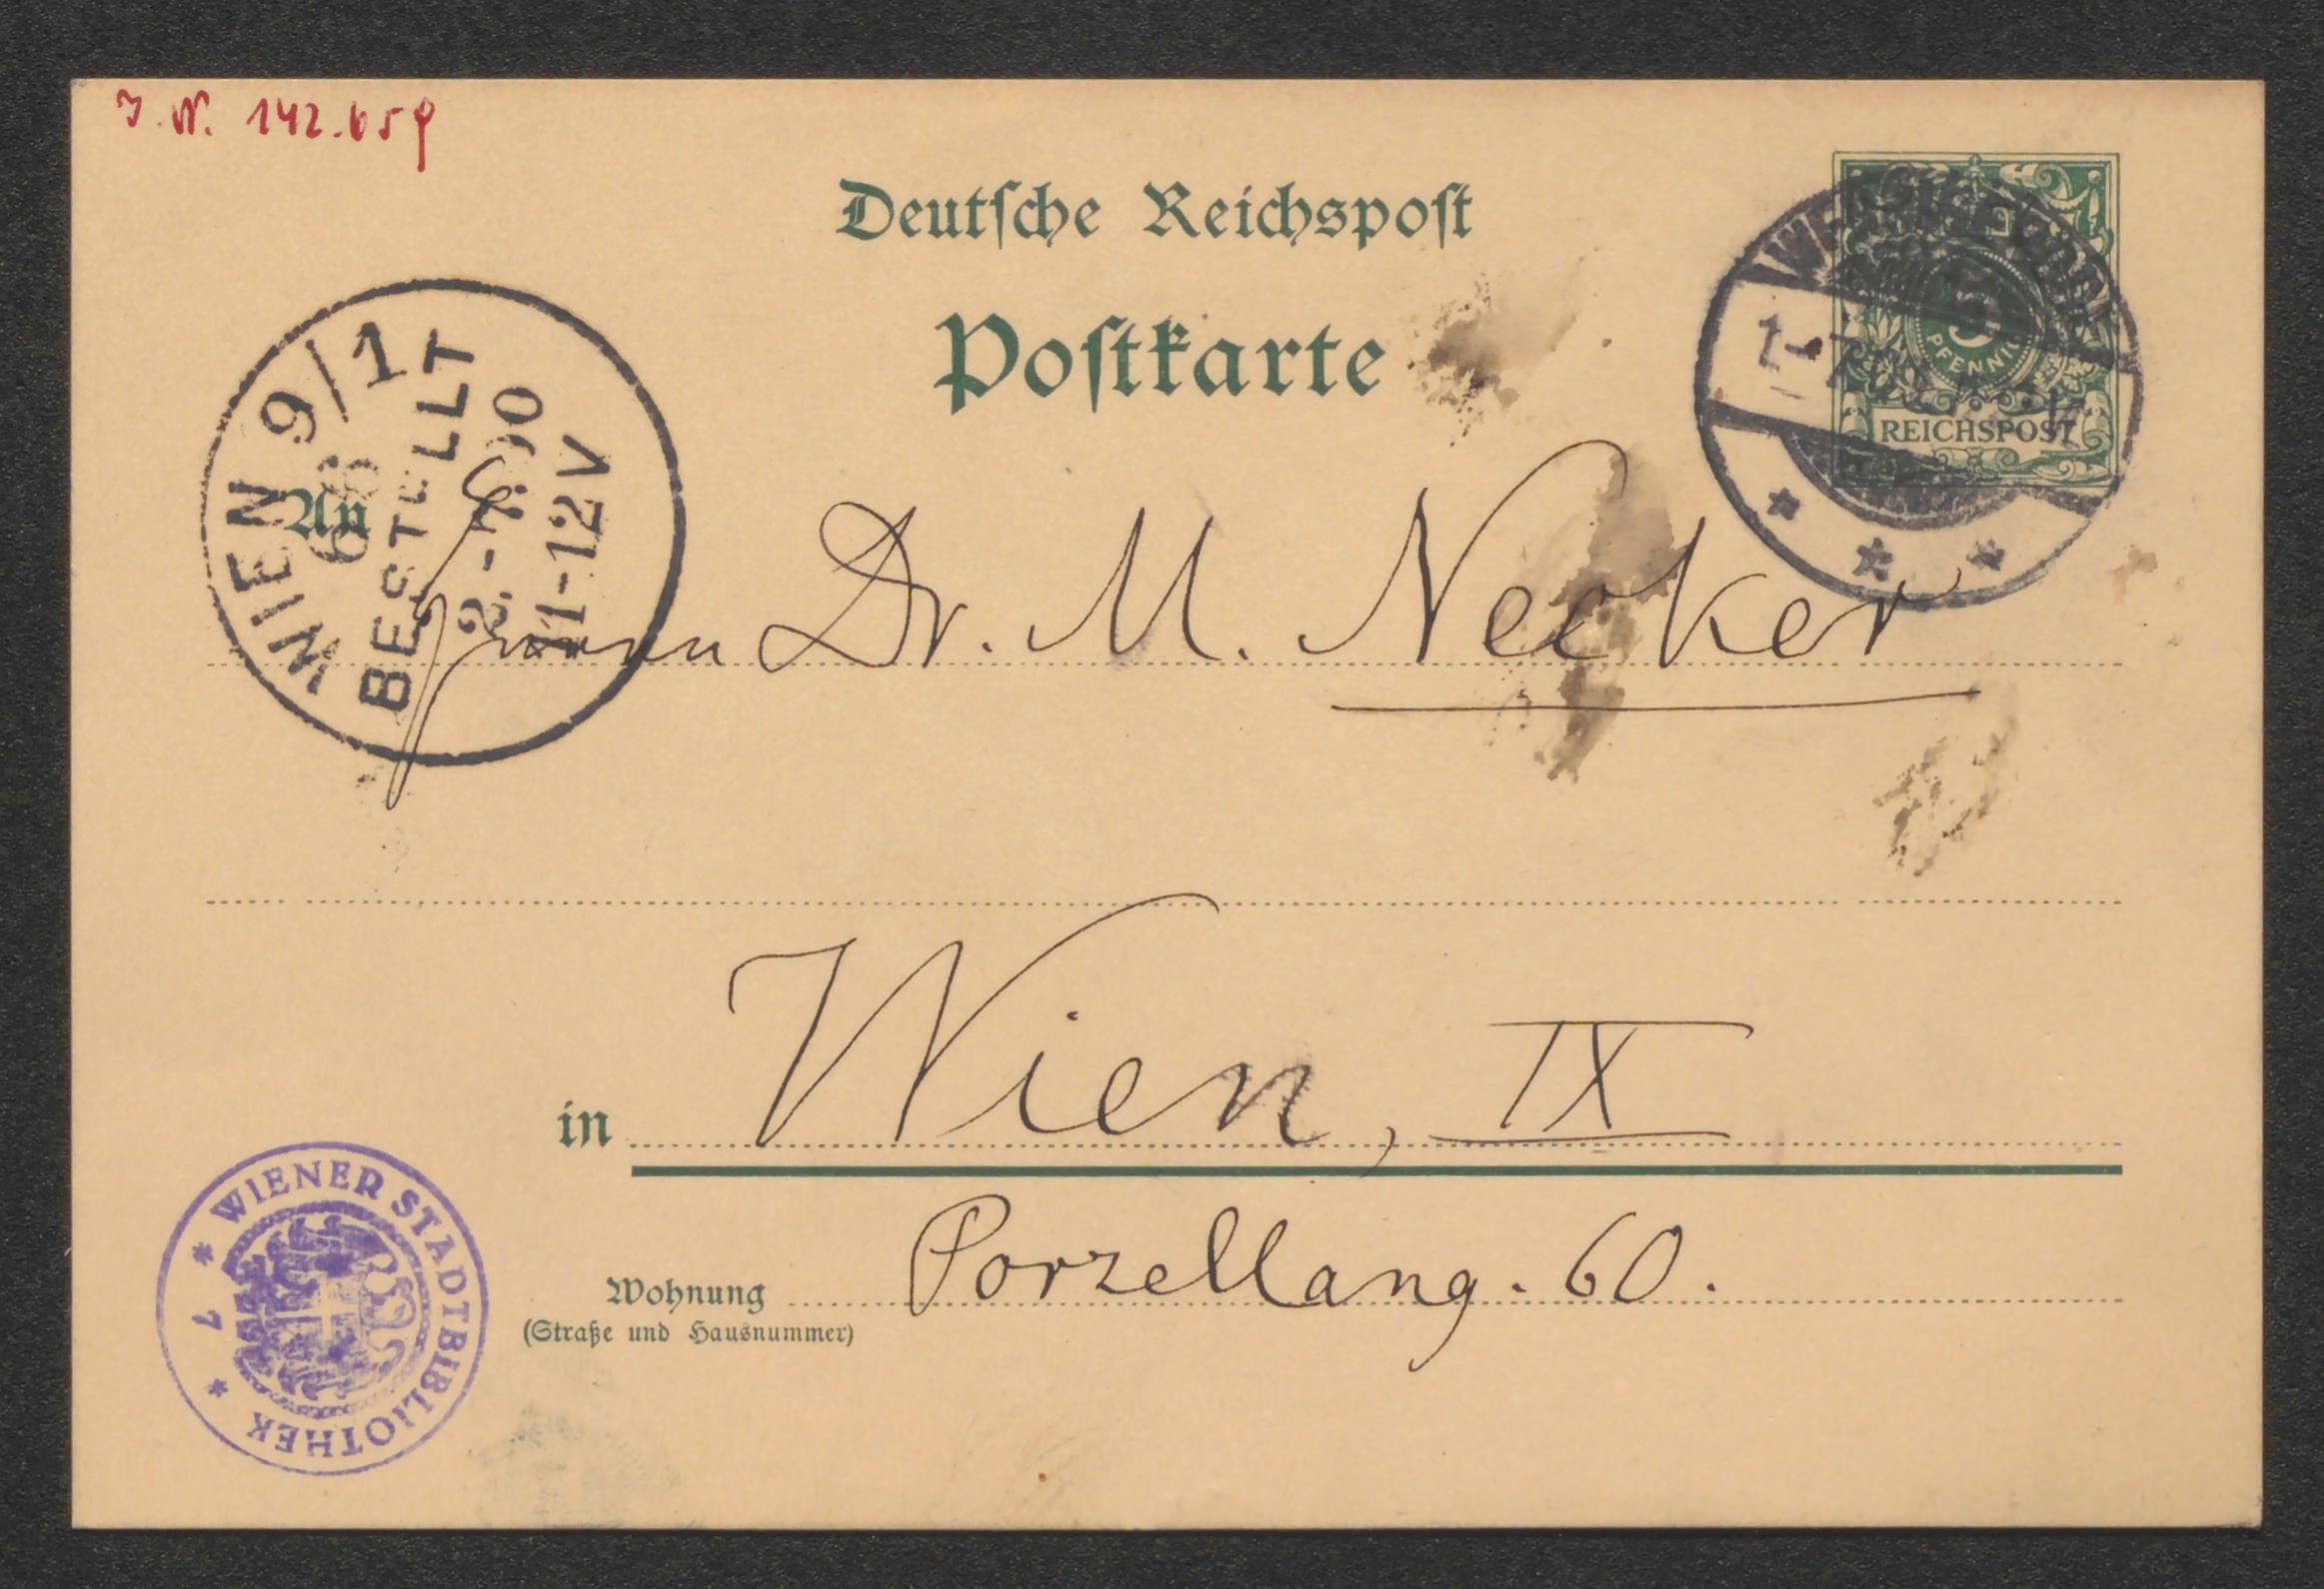 J.N. 142.659
Deutsche Reichspost
Postkarte
5
PFENNIG
REICHSPOST
WIEN 9/1
66
BESTELLT
2.-7.00
11-12V
An
Herrn Dr. M. Necker
in Wien, IX
Wohnung Porzellang. 60.
(Straße und Hausnummer)
* WIENER STADTBIBLIOTHEK * 7